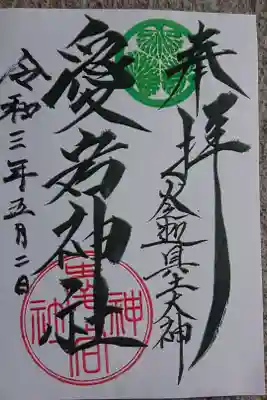 奉拝
火迦具土大神
愛宕神社
令和三年五月二日
愛宕神社